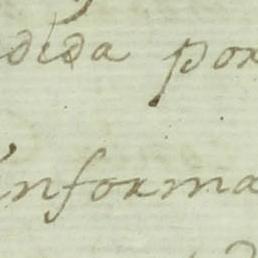 dida por
informa